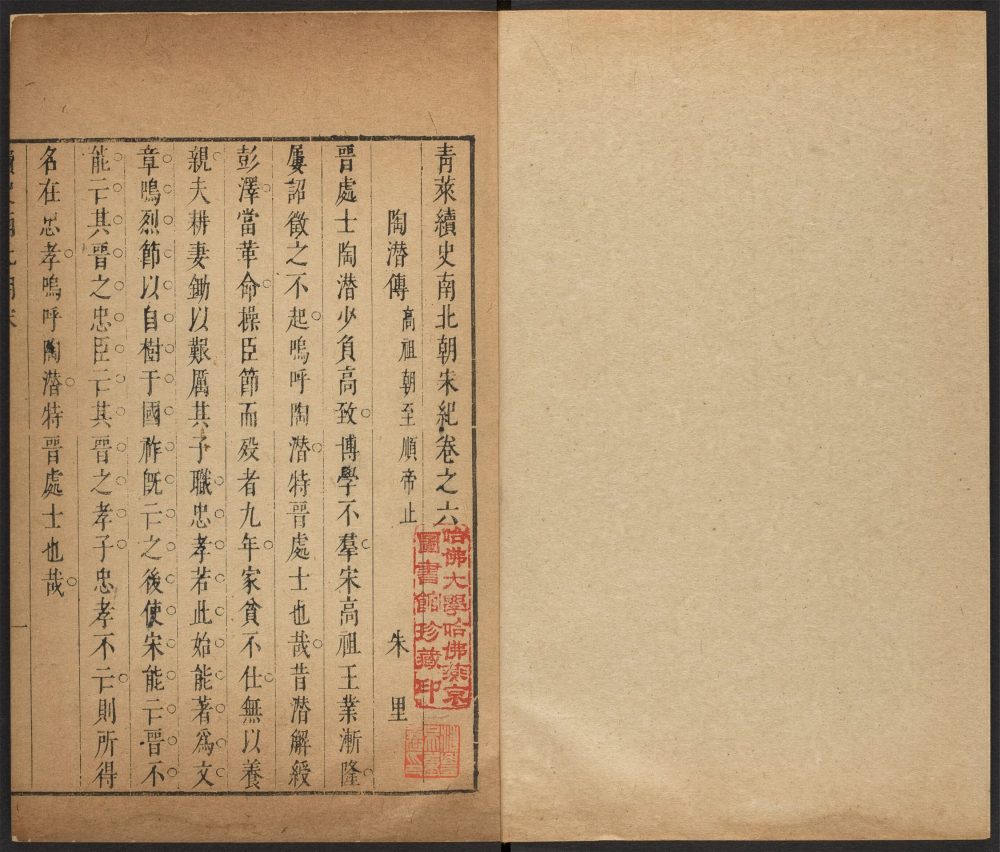 青萊續史南北朝宋紀卷之六
陶潛傳 高祖朝至順帝止 朱里
晋處士陶潛少負高致博學不羣宋高祖王業漸隆
屢詔徵之不起嗚呼陶潛特晋處士也哉昔潛解綬
彭澤當革命操臣節而歿者九年家貧不仕無以養
親夫耕妻鋤以艱厲其子職忠孝若此始能著爲文
章鳴烈節以自樹于國祚旣亡之後使宋能亡晋不
能亡其晋之忠臣亡其晋之孝子忠孝不亡則所得
名在忠孝嗚呼陶潛特晋處士也哉
一
哈佛大學哈佛燕京
圖書館珍藏印